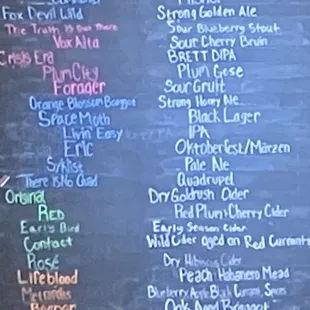 Fox Devil Wild Strong Golden Ale
The Truth is Out There Sour Blueberry Stout
Vox Alta Sour Cherry Bruin
Crisis Era BRETT DIPA
Plum City Plum Gose
Forager Sour Gruit
Orange Blossom Bragget Strong Honey Ale
Space Moth Black Lager
Livin' Easy IPA
Eric Oktoberfest/Märzen
Pale Ale
There Is No Quad Quadrupel
Original Dry Goldrush Cider
RED Red Plum & Cherry Cider
Early Bird Early Season Cider
Contact Wild Cider Aged on Red Currants
Rosé Dry Hibiscus Cider
Lifeblood Peach Habanero Mead
Blueberry, Apple, Black Currant, Spices